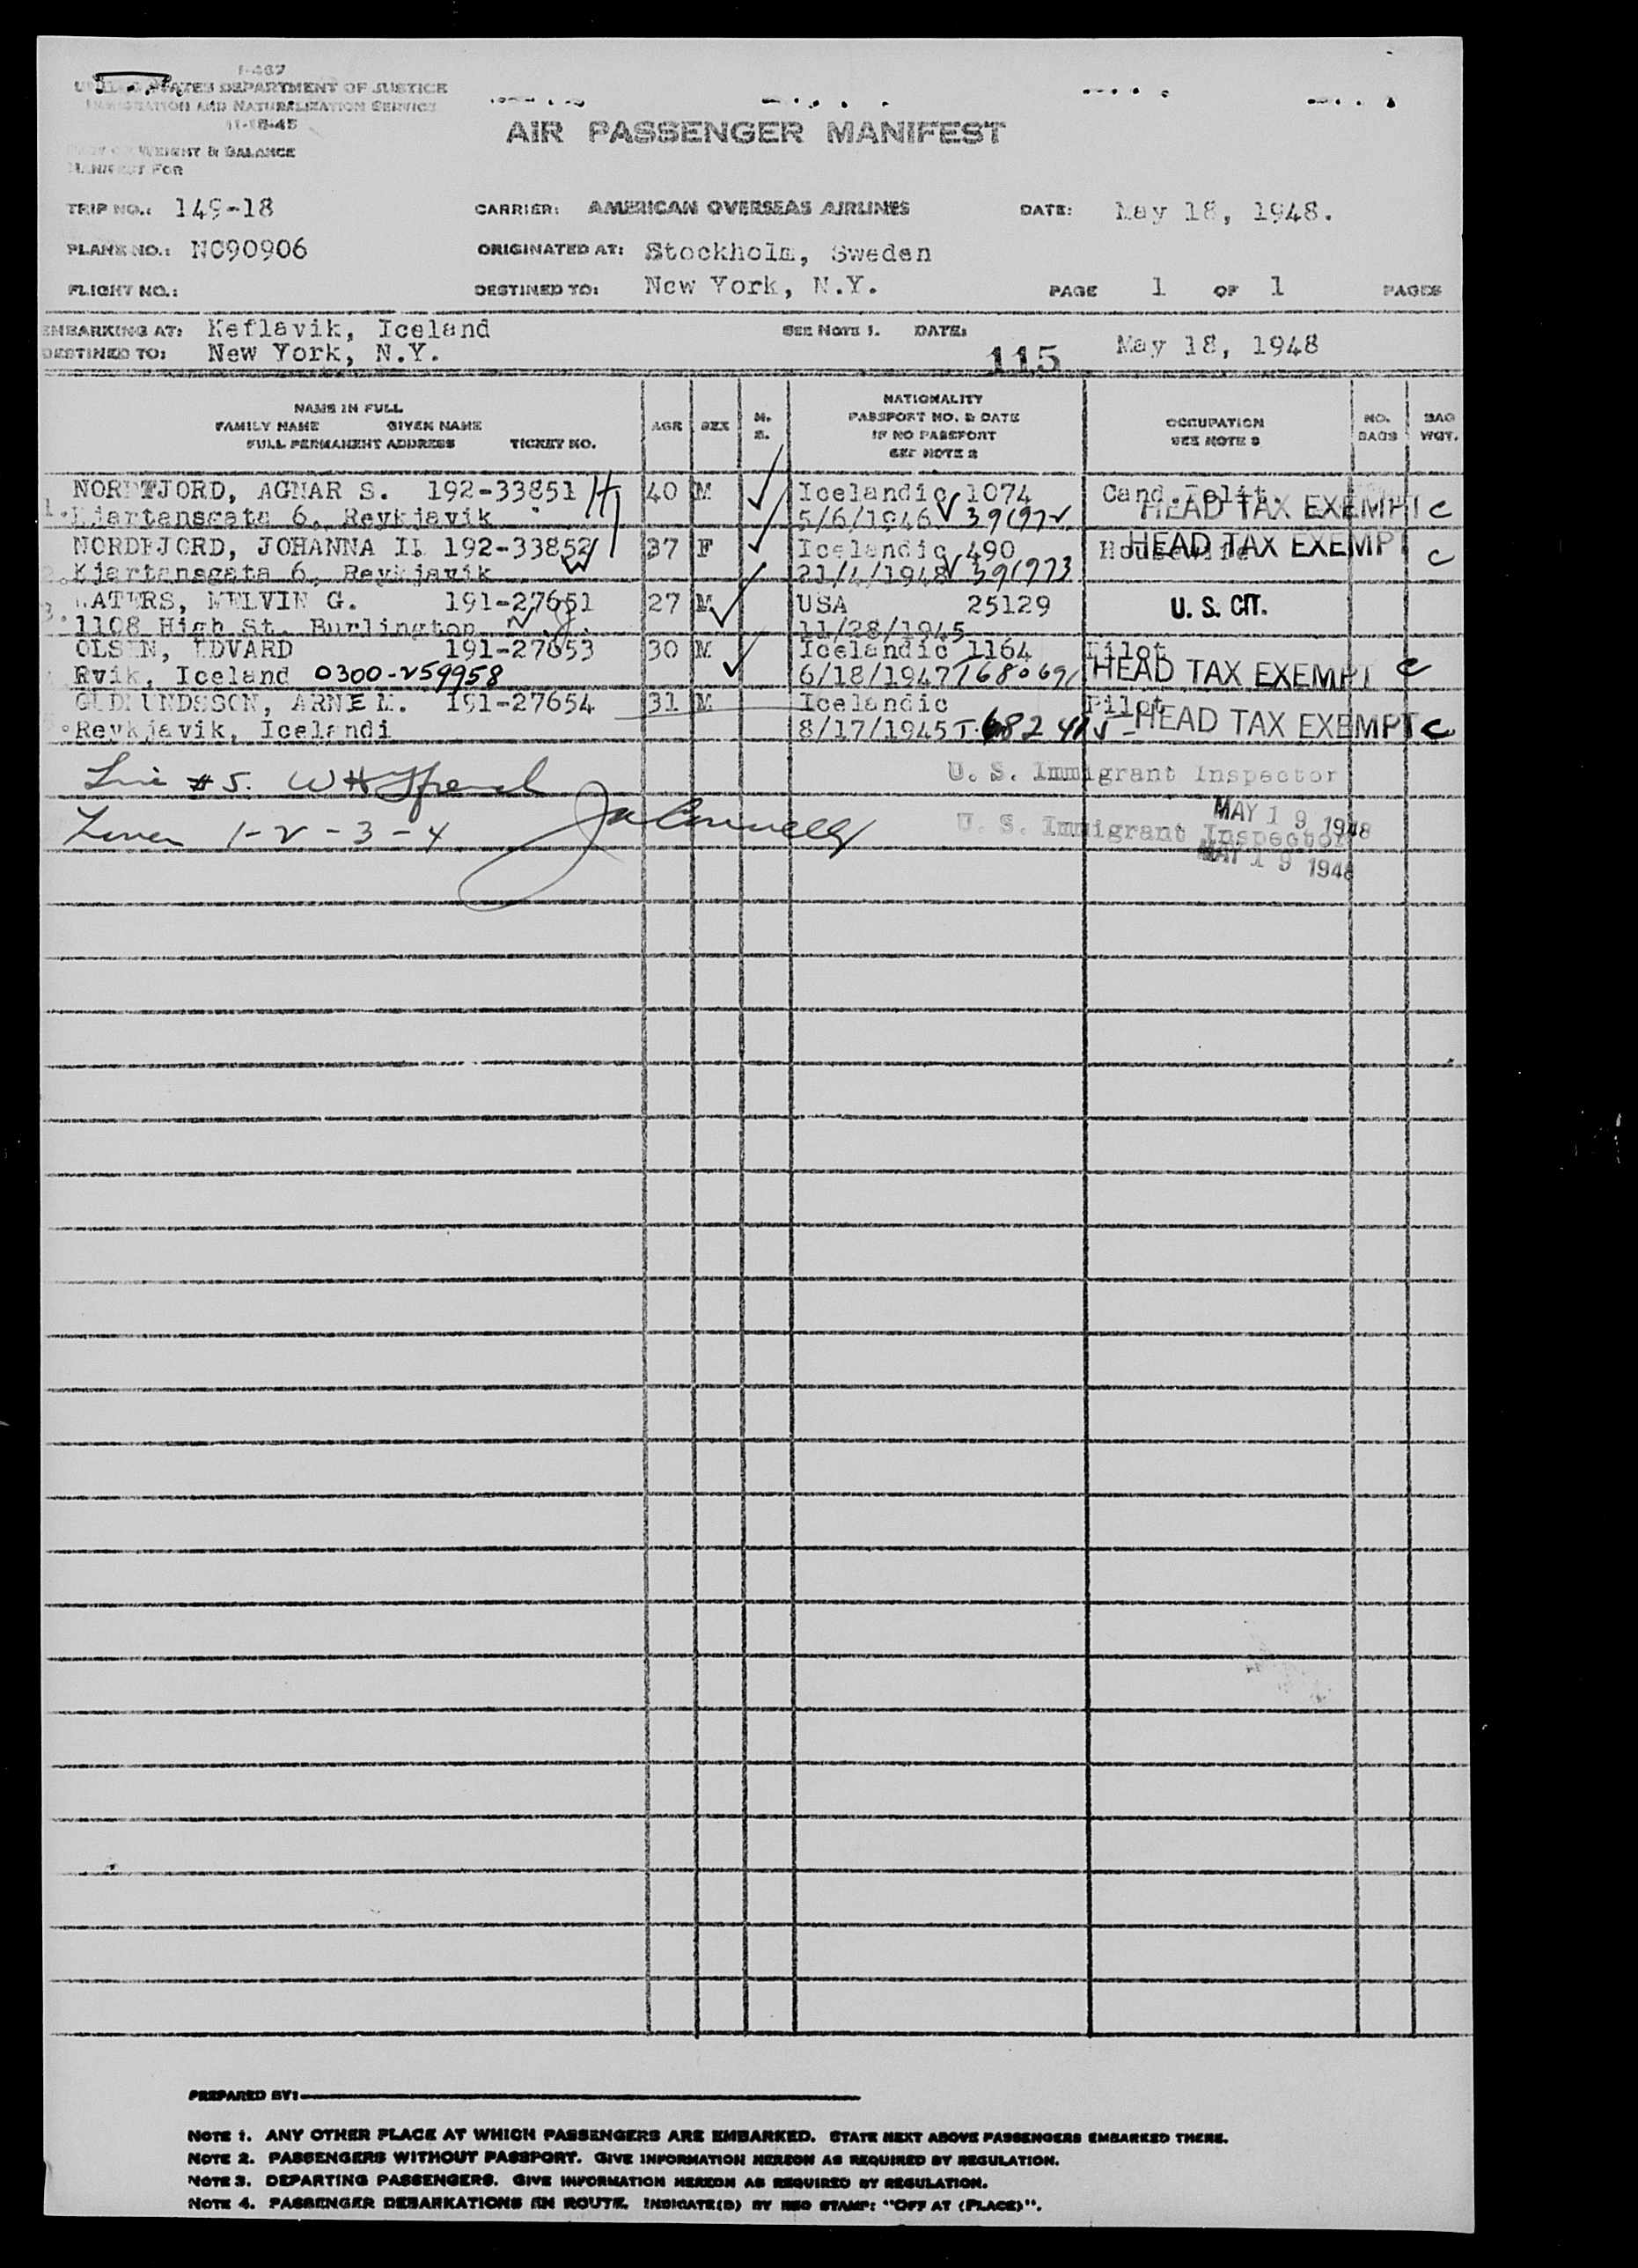 I-467
UNITED STATES DEPARTMENT OF JUSTICE
IMMIGRATION AND NATURALIZATION SERVICE
11-18-45
AIR PASSENGER MANIFEST
WEIGHT & BALANCE
MANIFEST FOR
TRIP NO.: 149-18 CARRIER: AMERICAN OVERSEAS AIRLINES DATE: May 18, 1948.
PLANE NO.: NC90906 ORIGINATED AT: Stockholm, Sweden
FLIGHT NO.: DESTINED TO: New York, N.Y. PAGE 1 OF 1 PAGES
EMBARKING AT: Keflavik, Iceland SEE NOTE 1. DATE: May 18, 1948
DESTINED TO: New York, N.Y. 115
NAME IN FULL
FAMILY NAME GIVEN NAME
FULL PERMANENT ADDRESS TICKET NO.
AGE
SEX
M.
S.
NATIONALITY
PASSPORT NO. & DATE
IF NO PASSPORT
SEE NOTE 2
OCCUPATION
SEE NOTE 3
NO.
BAGS
BAG
WGT.
NORDFJORD, AGNAR S. 192-33851 40 M Icelandic 1074 Cand. Polit.
1. Kjartansgata 6, Reykjavik 5/6/1946 V 391972 HEAD TAX EXEMPT C
NORDFJORD, JOHANNA 192-33852 37 F Icelandic 490 Housewife HEAD TAX EXEMPT
2. Kjartansgata 6, Reykjavik 21/4/1948 V 391973 C
WATERS, MELVIN G. 191-27651 27 M USA 25129 U. S. CIT.
3. 1108 High St. Burlington 11/28/1945
OLSEN, EDVARD 191-27653 30 M Icelandic 1164 Pilot
Rvik, Iceland 0300-259958 6/18/1947 T680691 HEAD TAX EXEMPT C
GUDMUNDSSON, ARNE M. 191-27654 31 M Icelandic Pilot
5. Reykjavik, Icelandi 8/17/1945 T. HEAD TAX EXEMPT C
Line #5. U. S. Immigrant Inspector
MAY 19 1948
Lines 1-2-3-4 U. S. Immigrant Inspector
MAY 19 1948
PREPARED BY:
NOTE 1. ANY OTHER PLACE AT WHICH PASSENGERS ARE EMBARKED. STATE NEXT ABOVE PASSENGERS EMBARKED THERE.
NOTE 2. PASSENGERS WITHOUT PASSPORT. GIVE INFORMATION HEREON AS REQUIRED BY REGULATION.
NOTE 3. DEPARTING PASSENGERS. GIVE INFORMATION HEREON AS REQUIRED BY REGULATION.
NOTE 4. PASSENGER DEBARKATIONS EN ROUTE. INDICATE(D) BY RED STAMP: "OFF AT (PLACE)".